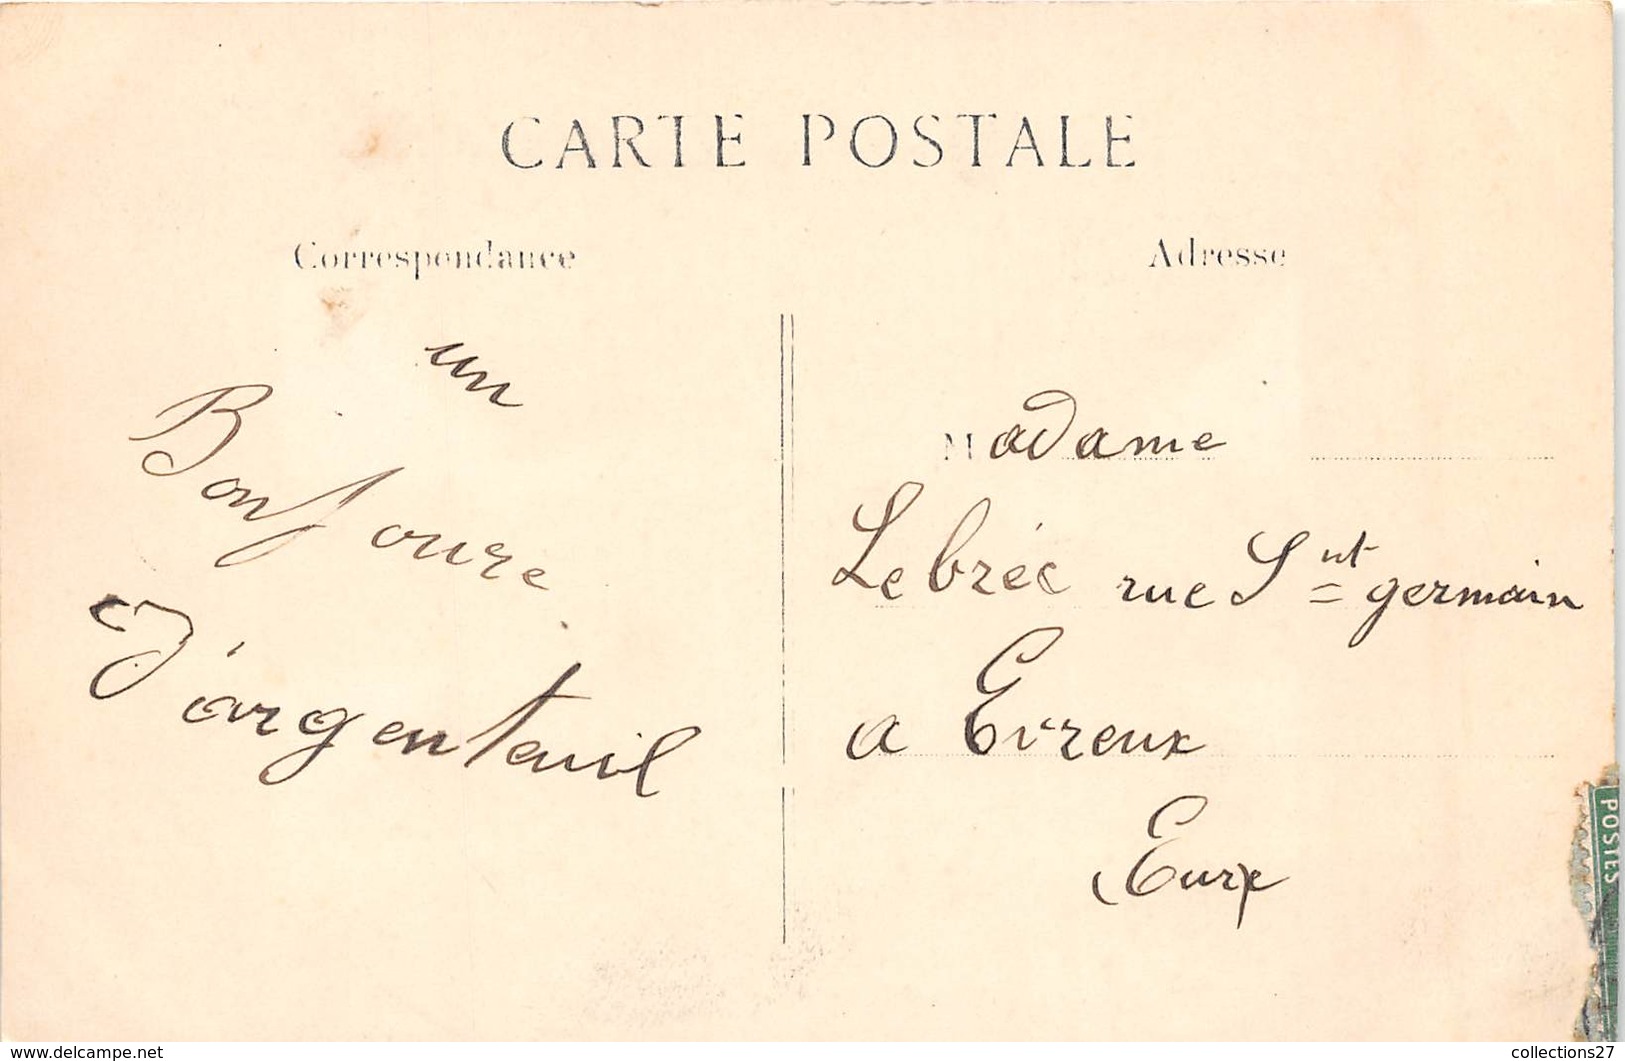 CARTE POSTALE
Correspondance
un
Bonjoure
D'argenteuil
Adresse
Madame
Lebréc rue Snt germain
a Evreux
Eure
POSTES
www.delcampe.net
collections27